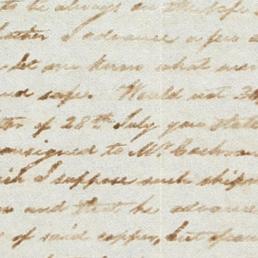 to be always on the safe
rather I advance a few
let me know what
and safe. Would not
of 28th July you state
consigned to Mr. Cochran
I suppose such ship
and that he advance
of said copper, but